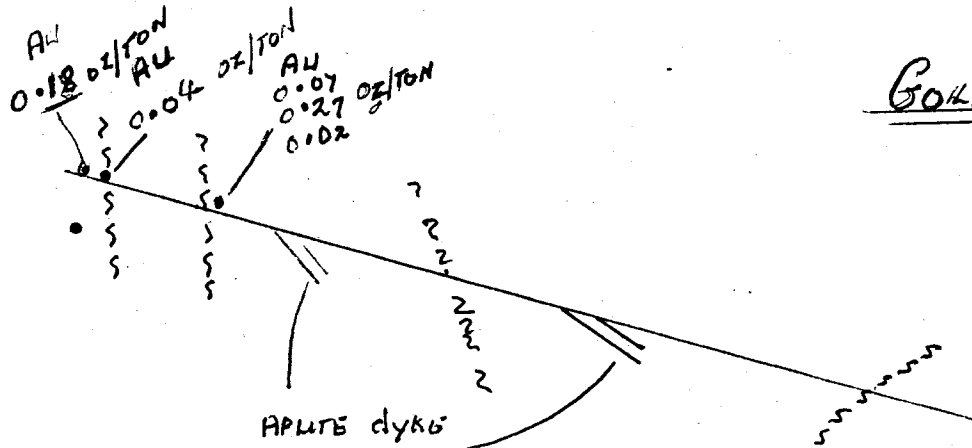 AU
0.18 OZ/TON
AU
0.04 OZ/TON
AU
0.07
0.27 OZ/TON
0.02
APLITE dyke